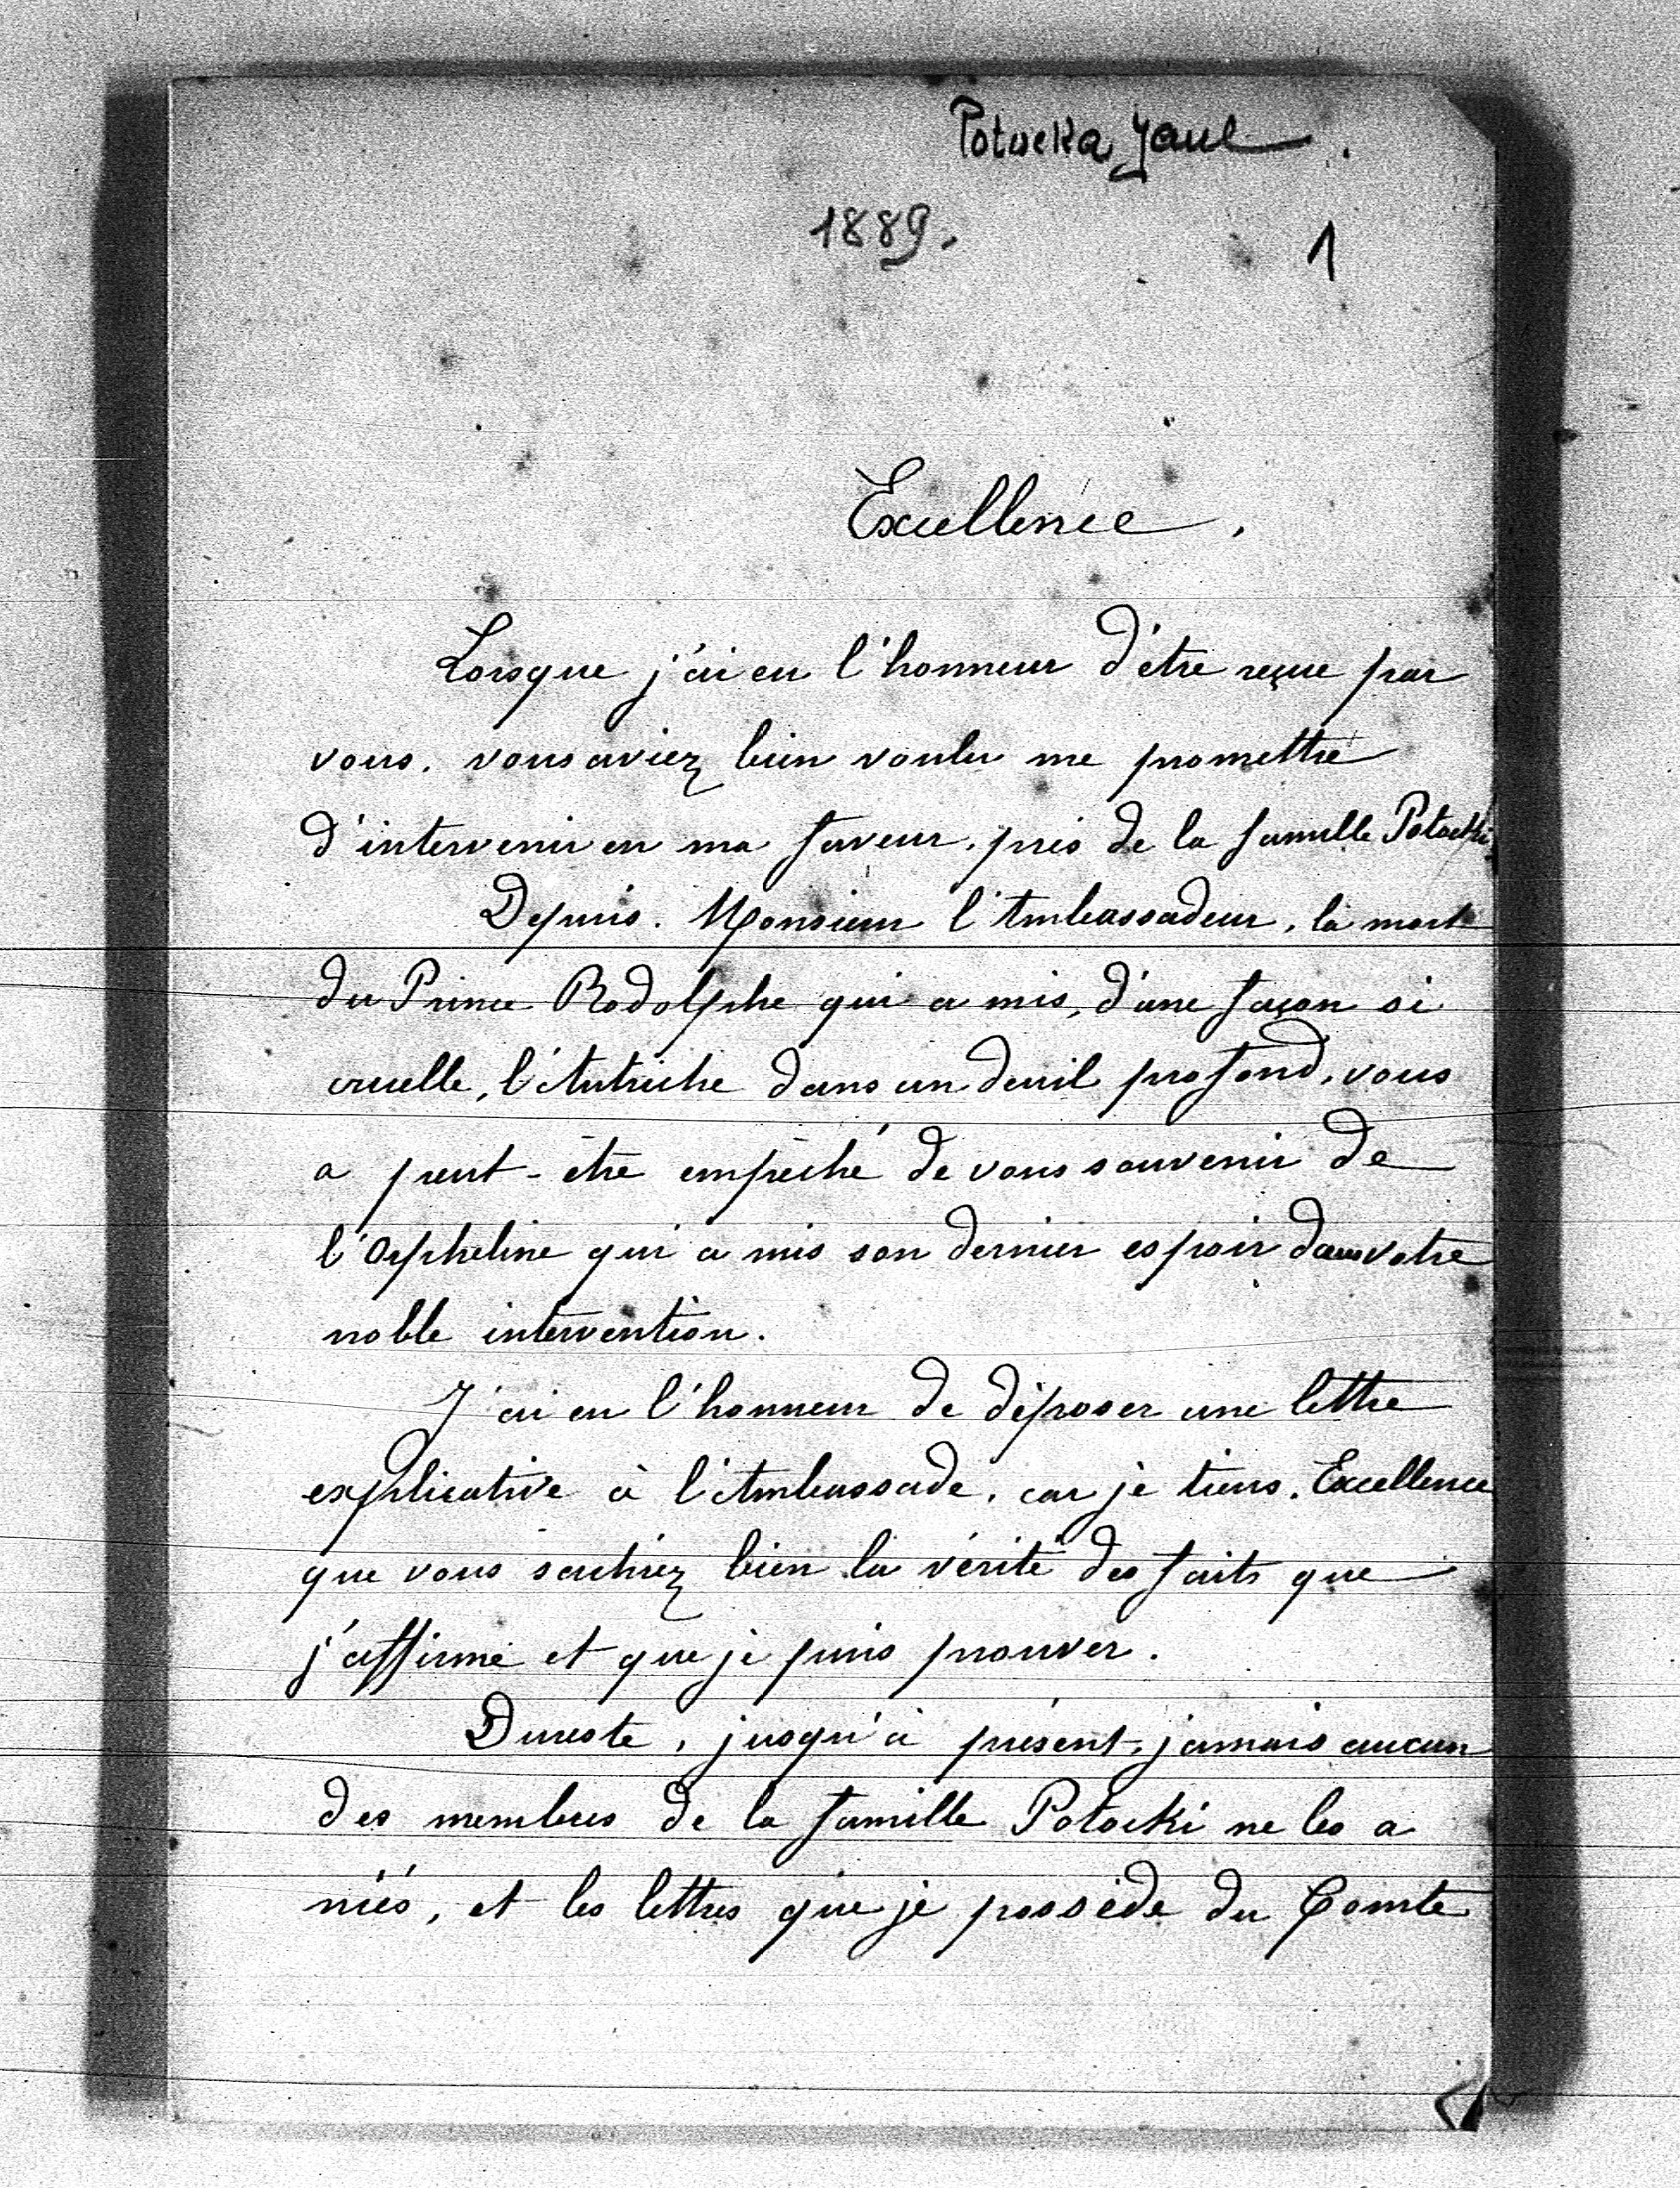 Potocka
1889.
1
Excellence,
Lorsque j'ai eu l'honneur d'être reçue par
vous, vous aviez bien voulu me promettre
d'intervenir en ma faveur, près de la famille Potocki.
Depuis, Monsieur l'Ambassadeur, la mort
du Prince Rodolphe qui a mis, d'une façon si
cruelle, l'Autriche dans un deuil profond, vous
a peut-être empêché de vous souvenir de
l'Orpheline qui a mis son dernier espoir dans votre
noble intervention.
J'ai eu l'honneur de déposer une lettre
explicative à l'Ambassade, car je tiens, Excellence
que vous sachiez bien la vérité des faits que
j'affirme et que je puis prouver.
Dureste, jusqu'à présent, jamais aucun
des membres de la famille Potocki ne les a
niés, et les lettres que je possède du Comte